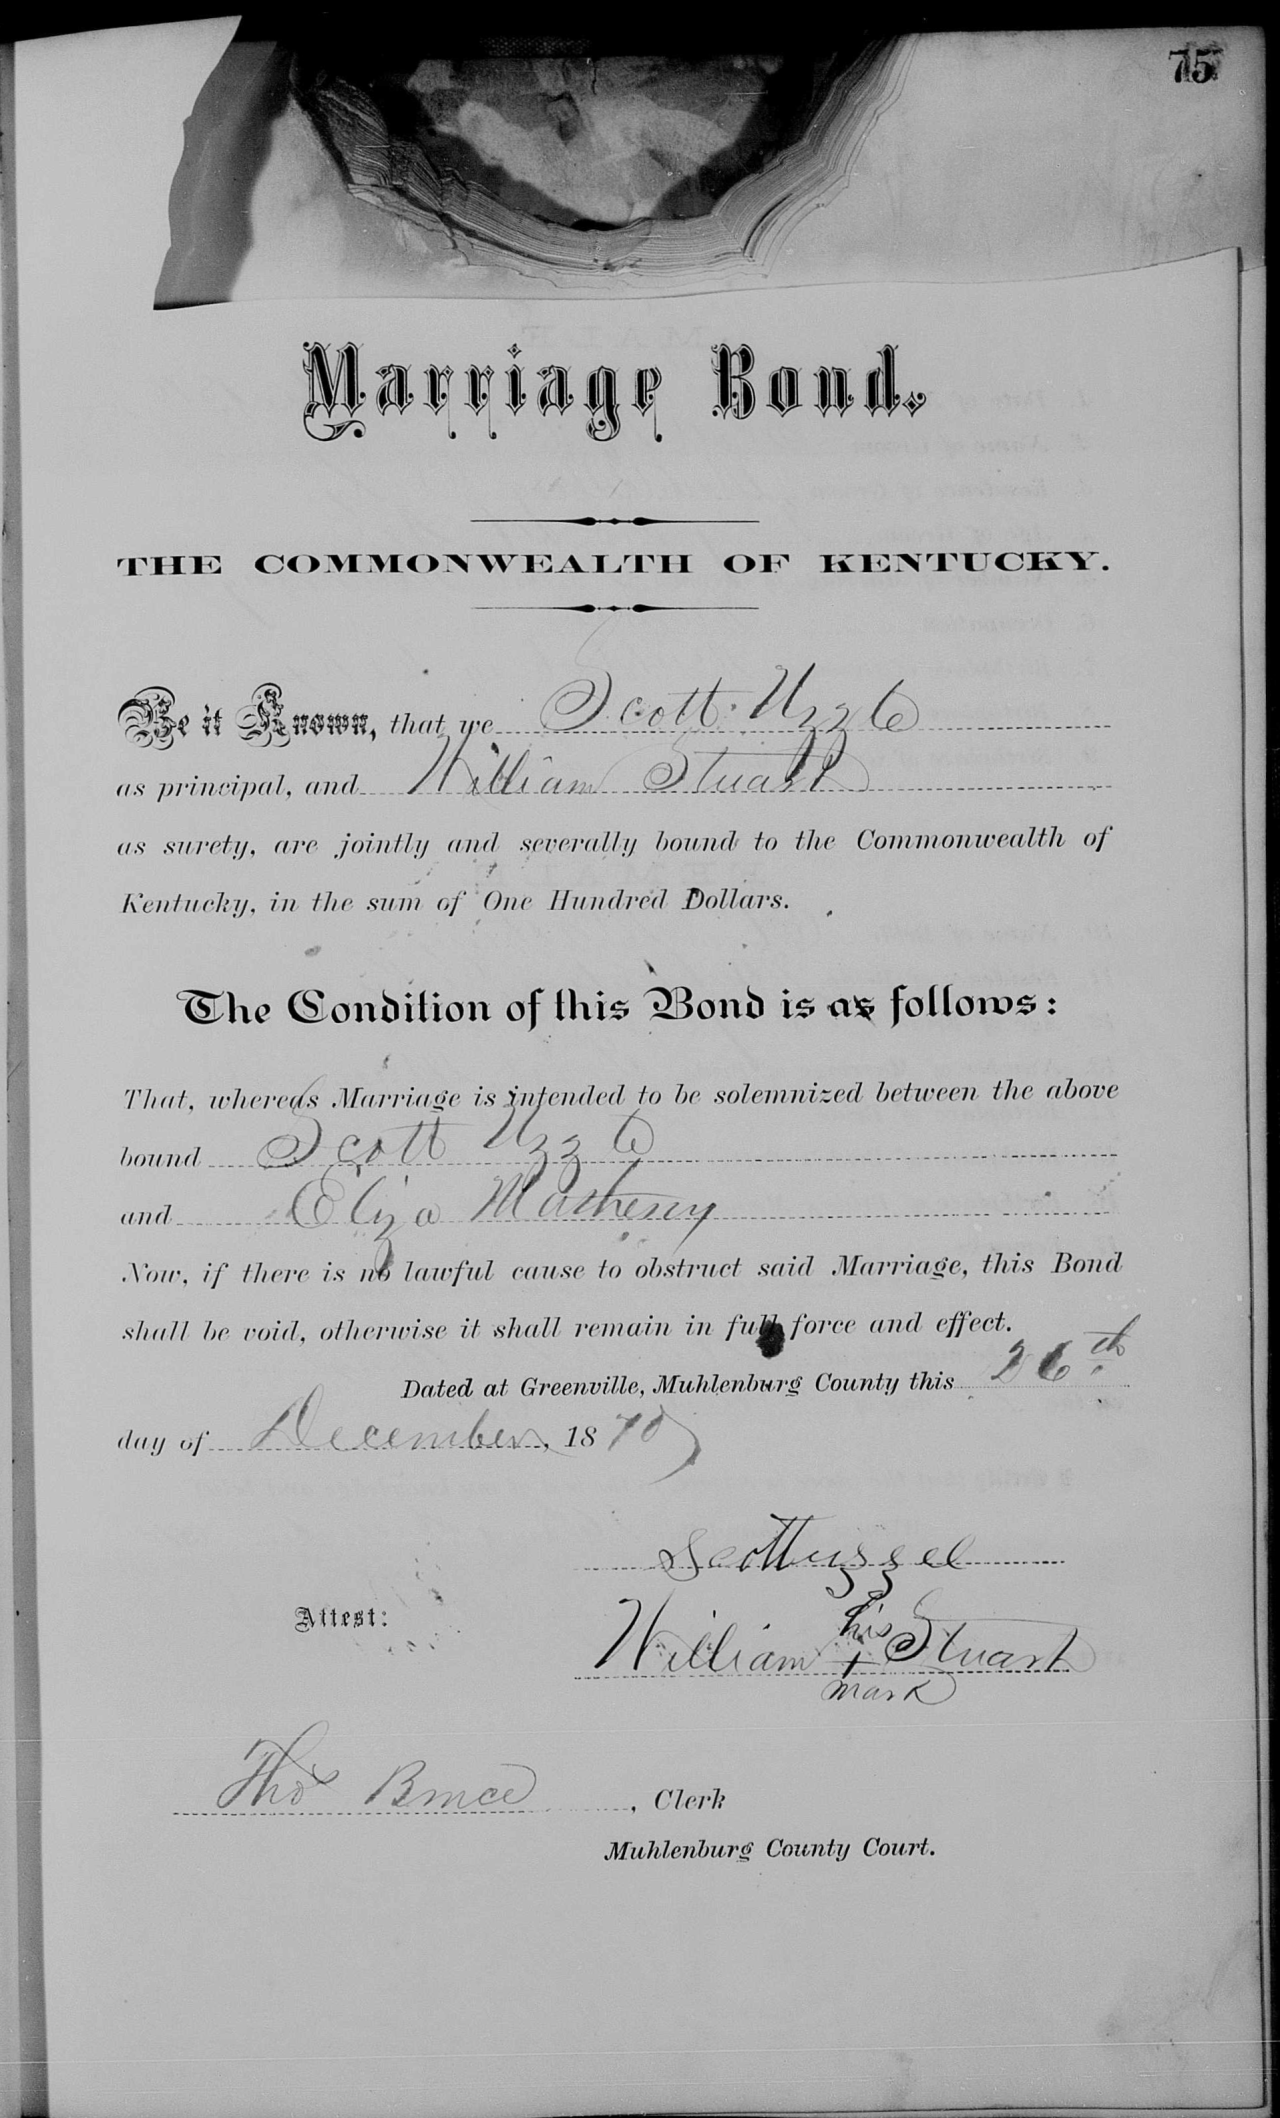 75
Marriage Bond.
THE COMMONWEALTH OF KENTUCKY.
Be it Known, that we Scott Uzzle
as principal, and William Stuart
as surety, are jointly and severally bound to the Commonwealth of
Kentucky, in the sum of One Hundred Dollars.
The Condition of this Bond is as follows:
That, whereas Marriage is intended to be solemnized between the above
bound Scott Uzzle
and Eliza Matheny
Now, if there is no lawful cause to obstruct said Marriage, this Bond
shall be void, otherwise it shall remain in full force and effect.
Dated at Greenville, Muhlenburg County this 26th
day of December, 1870
Scott uzzel
his
William + Stuart
mark
Attest:
Thos Bruce, Clerk
Muhlenburg County Court.